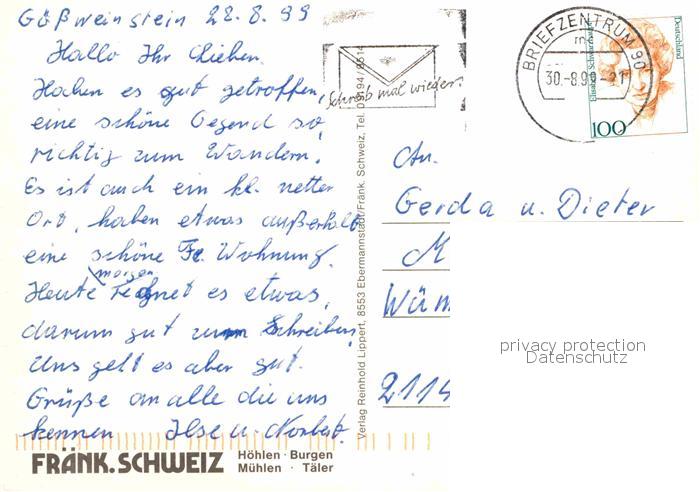 Gößweinstein 28.8.99
Hallo Ihr Lieben.
Haben es gut getroffen,
eine schöne Gegend so
richtig zum Wandern.
Es ist auch ein kl. netter
Ort, haben etwas außerhalb
eine schöne Fe. Wohnung.
morgen
Heute regnet es etwas,
darum gut zum Schreiben,
Uns geht es aber gut.
Grüße an alle die uns
kennen Ilse u. Norbert.
FRÄNK. SCHWEIZ
Höhlen · Burgen
Mühlen · Täler
Verlag Reinhold Lippert, 8553 Ebermannstadt/Fränk. Schweiz, Tel.
Schreib mal wieder!
BRIEFZENTRUM 90
30.-8.99-21
Deutschland
100
An.
Gerda u. Dieter
M
Wüm
2114
privacy protection
Datenschutz